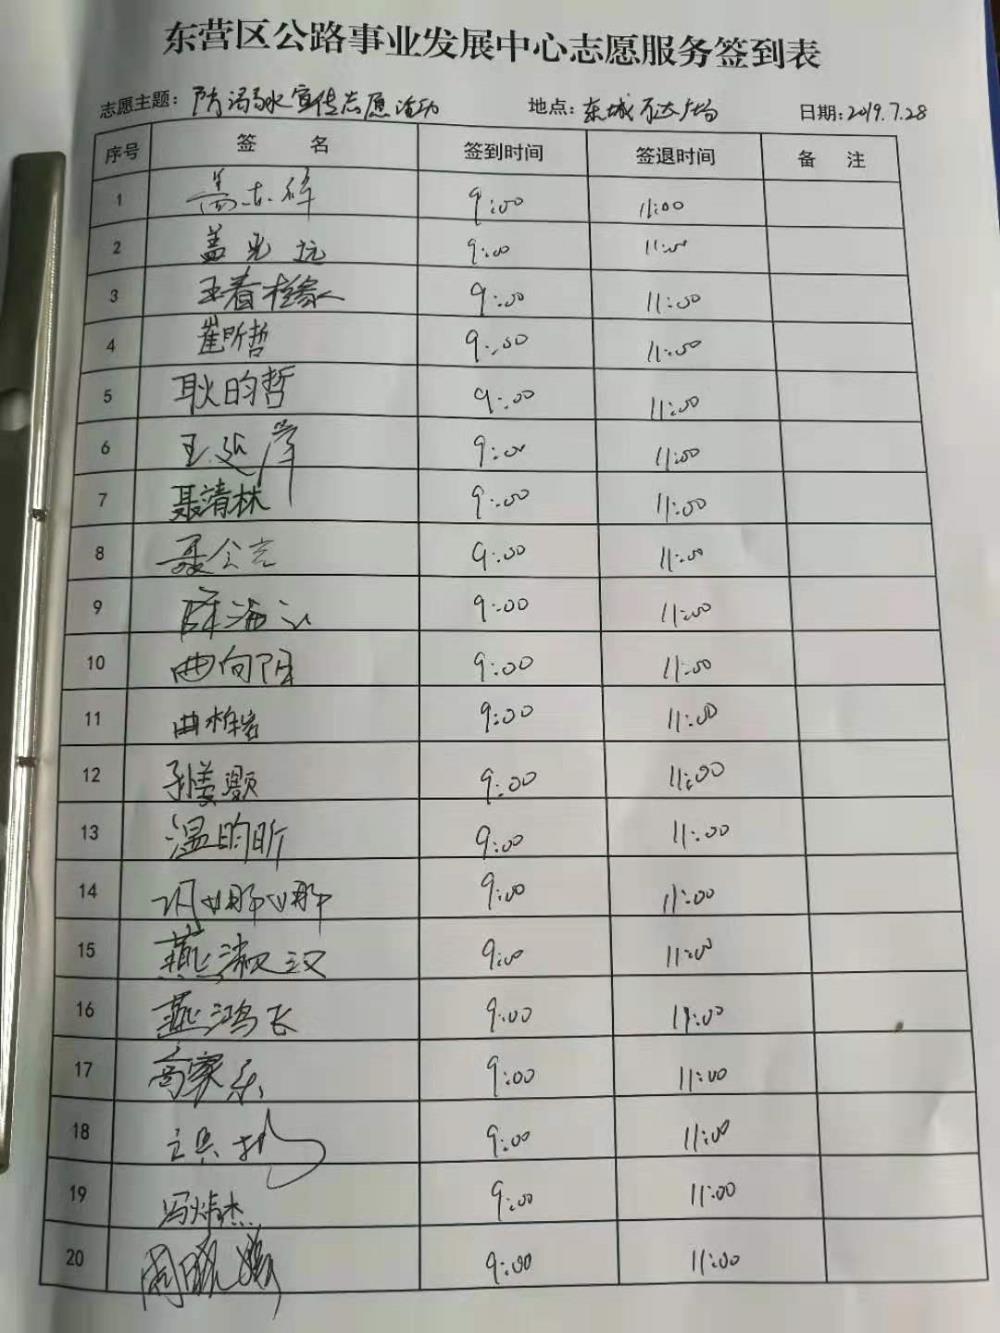 东营区公路事业发展中心志愿服务签到表
志愿主题: 防溺水宣传志愿活动 地点: 东城万达广场 日期: 2019.7.28
序号 签 名 签到时间 签退时间 备 注
1 9:00 11:00
2 盖 9:00 11:00
3 王春 9:00 11:00
4 崔昕哲 9:00 11:00
5 耿昀哲 9:00 11:00
6 王延 9:00 11:00
7 聂清林 9:00 11:00
8 9:00 11:00
9 海 9:00 11:00
10 曲向阳 9:00 11:00
11 曲柏岩 9:00 11:00
12 灏 9:00 11:00
13 温昀昕 9:00 11:00
14 娜娜 9:00 11:00
15 燕淑汉 9:00 11:00
16 燕鸿飞 9:00 11:00
17 高家乐 9:00 11:00
18 9:00 11:00
19 冯炜杰 9:00 11:00
20 周 9:00 11:00